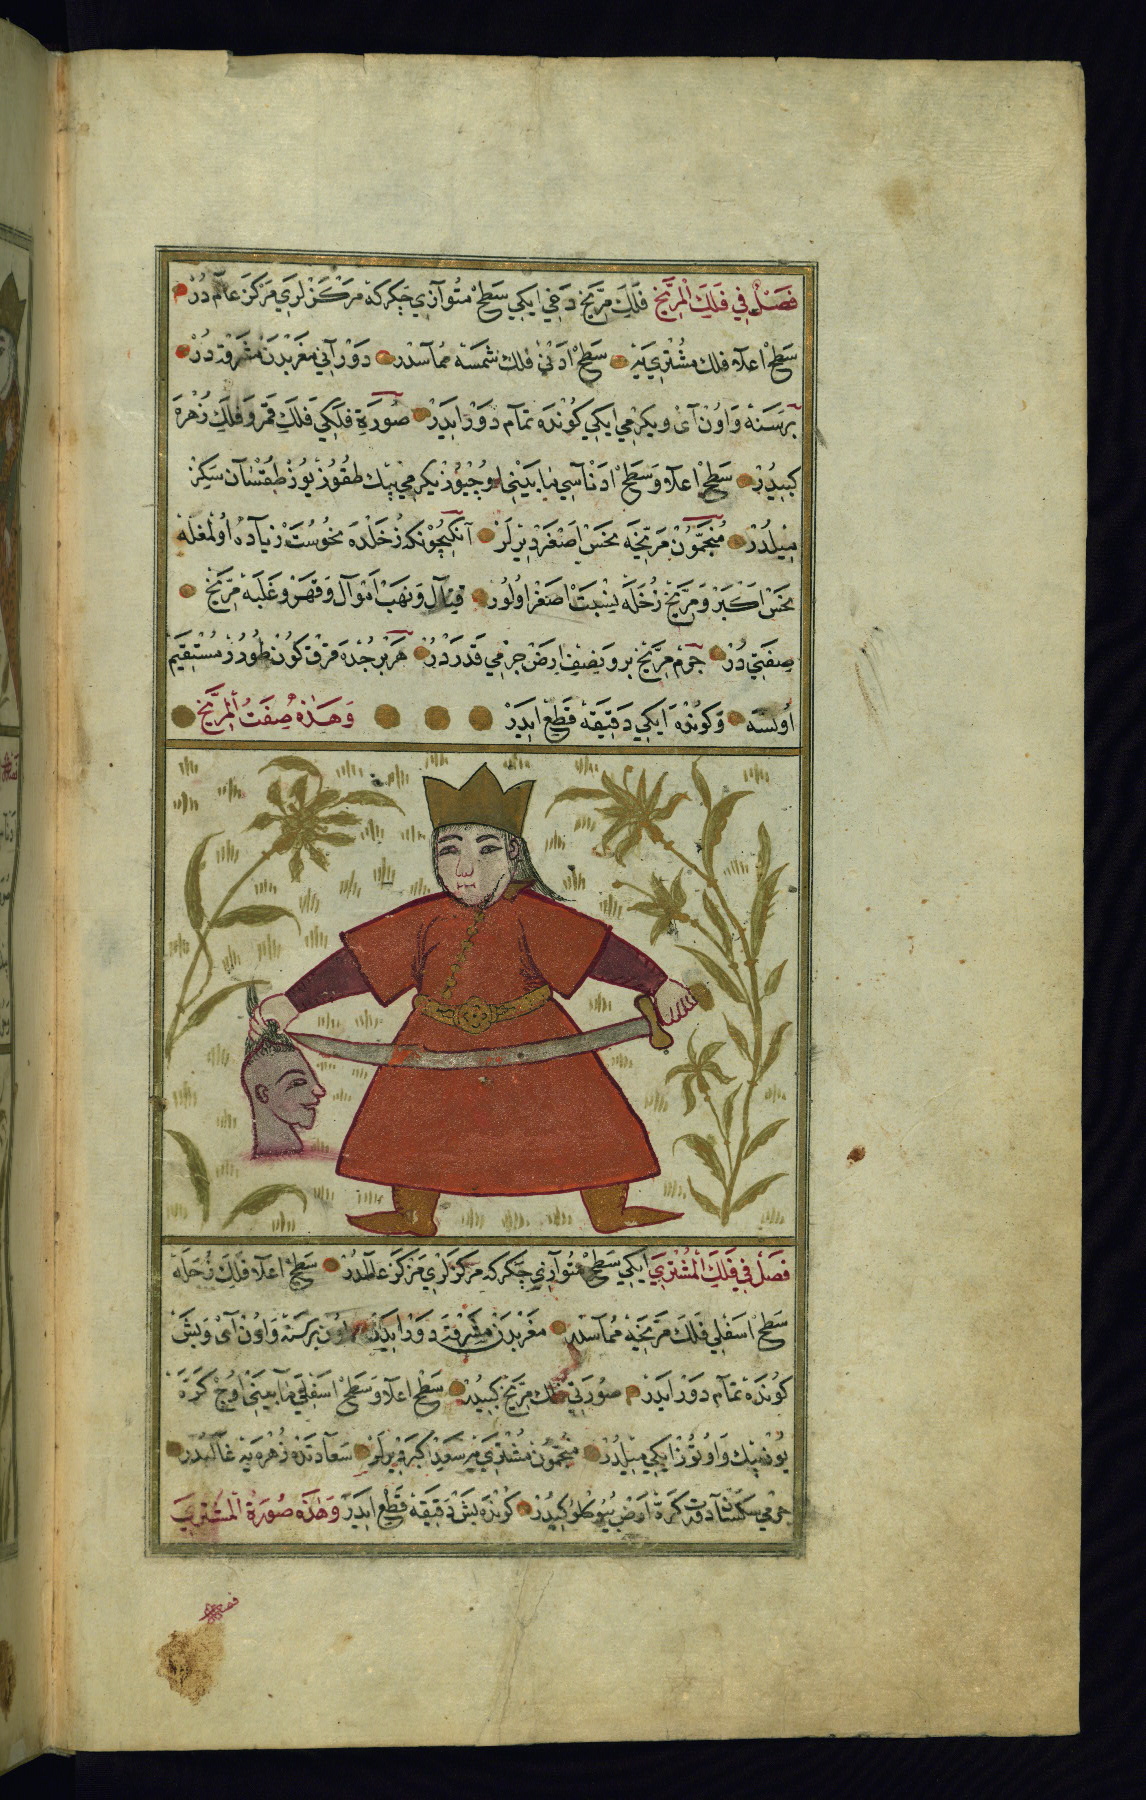 فَصْلٌ فِي فَلَكِ الْمِرِّيخِ فَلَكِ مِرِّيخْ دَخِي ايكِي سَطْحِ مُتَوَازِي چَكَركَهْ مَرْكَزْلَرِي مَرْكَزِ عَالَمْ دُرْ
سَطْحِ اعلَاء فلك مُشْتَرِي يَهْ سَطْحِ ادَنْي فلك شَمسَهْ مُمَاسدر دَوْرَانِي مَغْرِبْدَنْ مَشْرِقهْ دُرْ
بِرْسَنَهْ وَاوُنْ آيْ و يكرمي ايكي كُونْدَه تمآم دَوْر ايدَرْ صُورَةِ فَلَكِي فَلَكِ قَمَر وَفَلَكِ زُهْرَهْ
كبيدُرْ سَطْحِ اعلآ وَسَطْحِ ادْناسِي مَابَيْنِي اوچيُوزْ يكرمي بيك طقُوزْيُوزْ طقْسَان سَكِزْ
مِيلدُرْ مُنَجِّمُونْ مَرِّيخَه نَحْسِ اَصْغَرْ دِيرلَرْ آنكِچُونكه زُحَلْدَه نحُوسَتْ زِيادَه اُولْمغلَهْ
نَحْسِ اَكْبَرْ وَمِرِّيخْ زُحَلَه نِسْبَتْ اَصغَرْ اولُورْ قِتَال وَنَهْبِ اَمْوَال وَقَهَرْ وَغَلَبَهْ مِرِّيخْ
صِفَتِي دُرْ جرم مِرِّيخْ بر وَنِصْفِ اَرضْ جِرمِي قَدَرْدُرْ هَرْ بُرْجُدَه قرق كون طُورُرْ مُسْتَقِيمْ
اُولسَه وَكُونْدَه ايكي دَقِيقَهْ قَطِعْ ايدَرْ وَهَذِهِ صِفَتُ الْمِرِّيخِ
فَصْلٌ فِي فَلَكِ الْمُشْتَرِي ايكِي سَطْحِ مُتَوَازِي چَكَركَه مَركَزْلَرِي مَرْكَزِ عالَمدُرْ سَطْحِ اعلآ فلك زُحَلَهْ
سَطْحِ اسفلي فلك مَرِّيخَه مُمَاسدر مَغْرِبدَنْ مَشْرِقَه دَوْر ايدَرْ اون برسنه وَاوُنْ آيْ وَبَشْ
كُونْدَهْ تمآم دَوْر ايدَرْ صُورَتِي فلك مِرِّيخ كبيدُرْ سَطْحِ اعلآ وَ سَطْحِ اسفلي مابَينِي اوچ كَرَّهْ
يُوزْبيك وَاوُتُوزْ ايكي مِيلدُرْ مُنجِّمُون مُشْتَرِي يَهْ سَعْدِ اكبَرْ ديرلَرْ سَعَادتْدَه زُهْرَه يَهْ غَالِبدُرْ
جرمي سَكسَان دُرت كَرَّه اَرض بُيُوكلُوكيدُرْ كُونْدَه بَشْ دَقِيقَهْ قَطِعْ ايدَرْ وَهَذِهِ صُورَةُ الْمُشْتَرِي